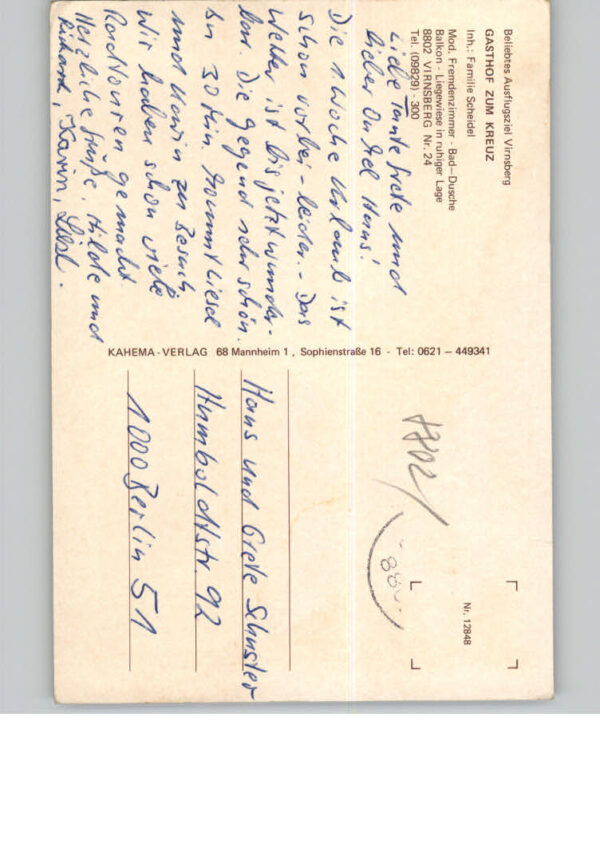 Beliebtes Ausflugsziel Virnsberg
GASTHOF ZUM KREUZ
Inh.: Familie Scheidel
Mod. Fremdenzimmer - Bad–Dusche
Balkon - Liegewiese in ruhiger Lage
8802 VIRNSBERG Nr. 24
Tel. (09829) - 300
Liebe Tante Grete und
lieber Onkel Hans!
Die 1. Woche Urlaub ist
schon vorbei - leider. - Das
Wetter ist bis jetzt wunder-
bar. Die Gegend sehr schön.
In 30 Min. kommt Liesel
und zu Besuch
Wir haben schon viele
Radtouren gemacht
Herzliche Grüße, Hilde und
Richard, Karin,
KAHEMA-VERLAG 68 Mannheim 1, Sophienstraße 16 - Tel: 0621 – 449341
Nr. 12848
880
Hans und Grete Schuster
Humboldtstr. 92
1000 Berlin 51